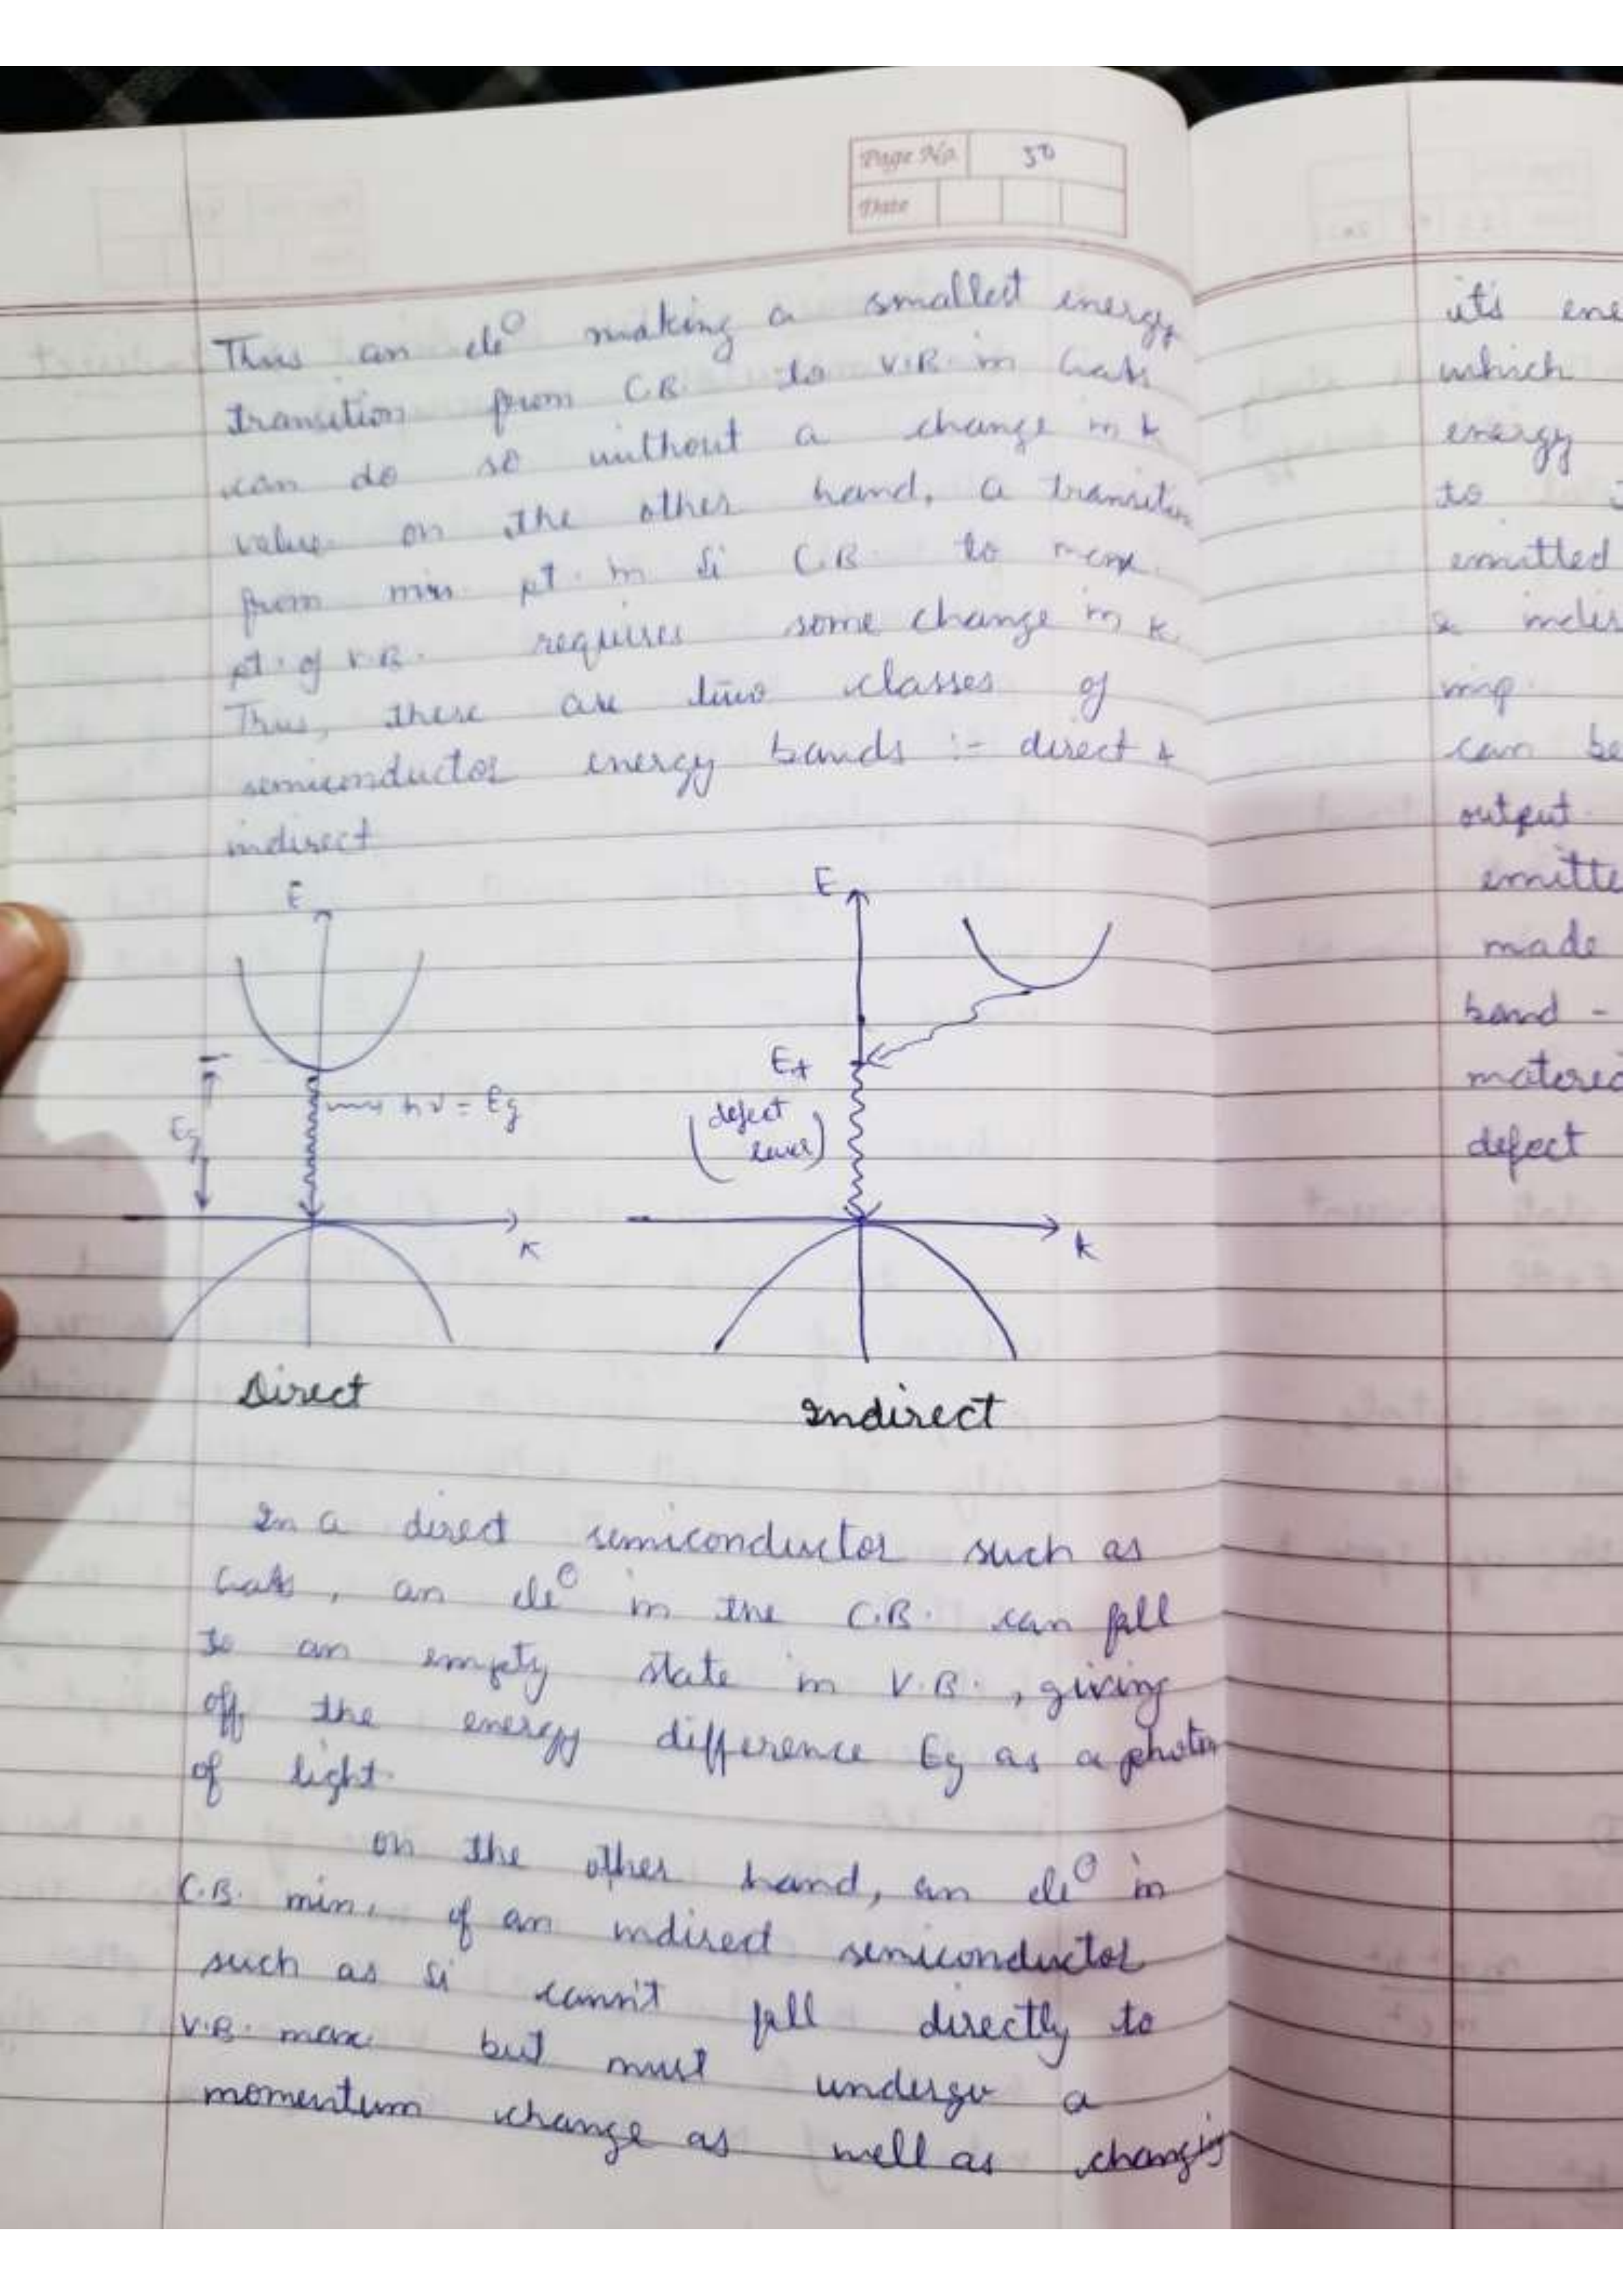 Page No. 50
Date
Thus an ele⊖ making a smallest energy
transition from C.B. to V.B. in GaAs
can do so without a change in k
value. on the other hand, a transition
from min pt. in Si C.B. to max
pt. of V.B. requires some change in k.
Thus, there are two classes of
semiconductor energy bands :- direct &
indirect
E
Eg
hν = Eg
k
Direct
E
Et
(defect
level)
k
Indirect
In a direct semiconductor such as
GaAs, an ele⊖ in the C.B. can fall
to an empty state in V.B., giving
off the energy difference Eg as a photon
of light.
on the other hand, an ele⊖ in
C.B. min. of an indirect semiconductor
such as Si cann't fall directly to
V.B. max but must undergo a
momentum change as well as changing
it's ene
which
energy
to
emitted
& indir
imp.
can be
output.
emitte
made
band -
materia
defect